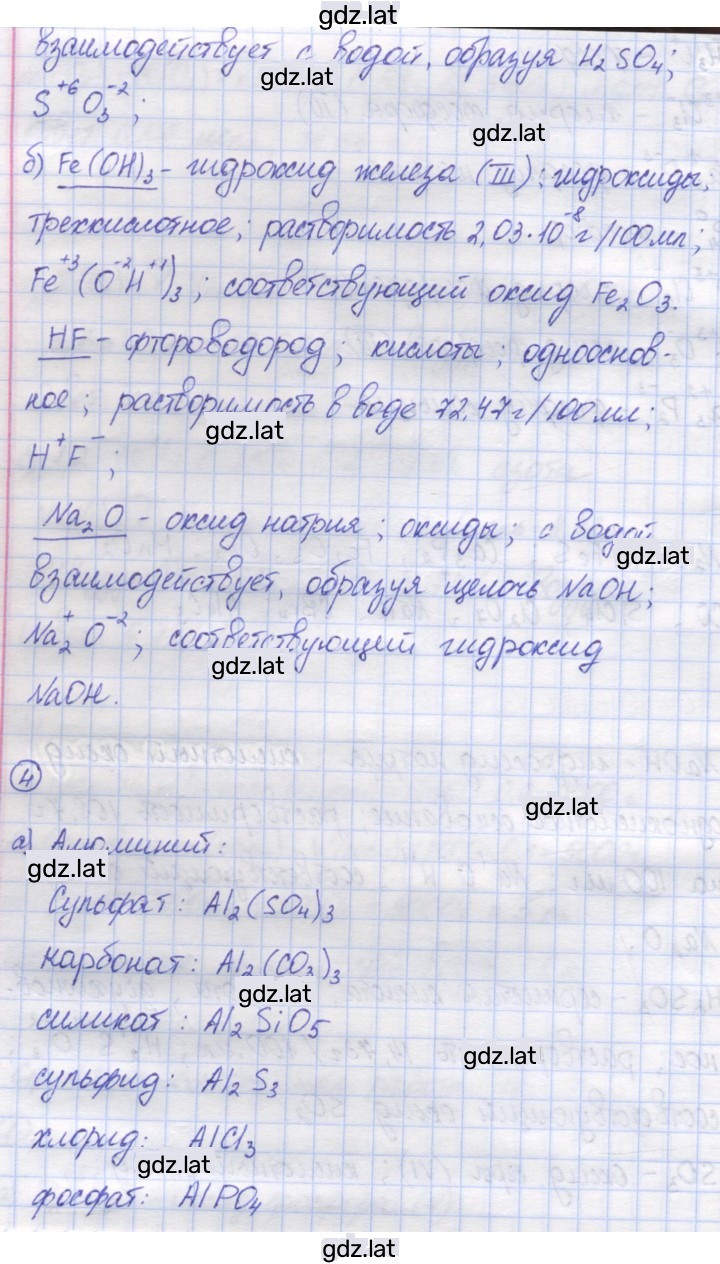 gdz.lat
взаимодействует с водой, образуя H₂SO₄;
gdz.lat
S⁺⁶O₃⁻²;
gdz.lat
б) Fe(OH)₃ - гидроксид железа (III); гидроксиды;
трехкислотное; растворимость 2,03·10⁻⁸ г/100мл;
Fe⁺³(O⁻²H⁺¹)₃; соответствующий оксид Fe₂O₃.
HF - фтороводород; кислоты; однооснов-
ное; растворимость в воде 72,47 г/100мл;
gdz.lat
H⁺F⁻;
Na₂O - оксид натрия; оксиды; с водой
gdz.lat
взаимодействует, образуя щелочь NaOH;
Na₂⁺O⁻²; соответствующий гидроксид
gdz.lat
NaOH.
4
gdz.lat
а) Алюминий:
gdz.lat
Сульфат: Al₂(SO₄)₃
карбонат: Al₂(CO₃)₃
gdz.lat
силикат: Al₂SiO₅
gdz.lat
сульфид: Al₂S₃
хлорид: AlCl₃
gdz.lat
фосфат: AlPO₄
gdz.lat